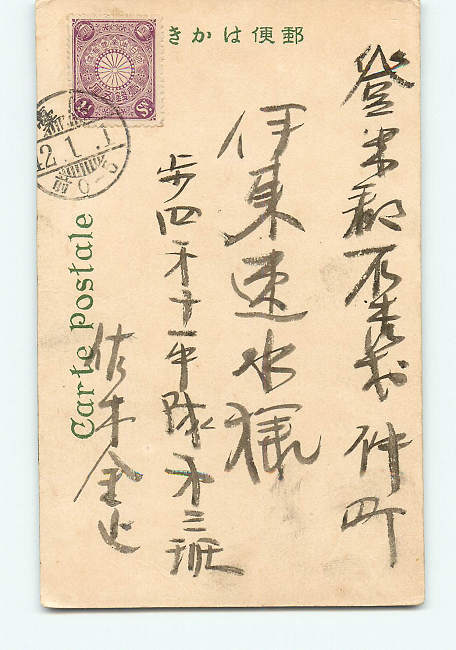 郵便はかき
登米郡石森村仲町
伊東速水様
歩四才十一中隊才三班
Carte Postale
42.1.1